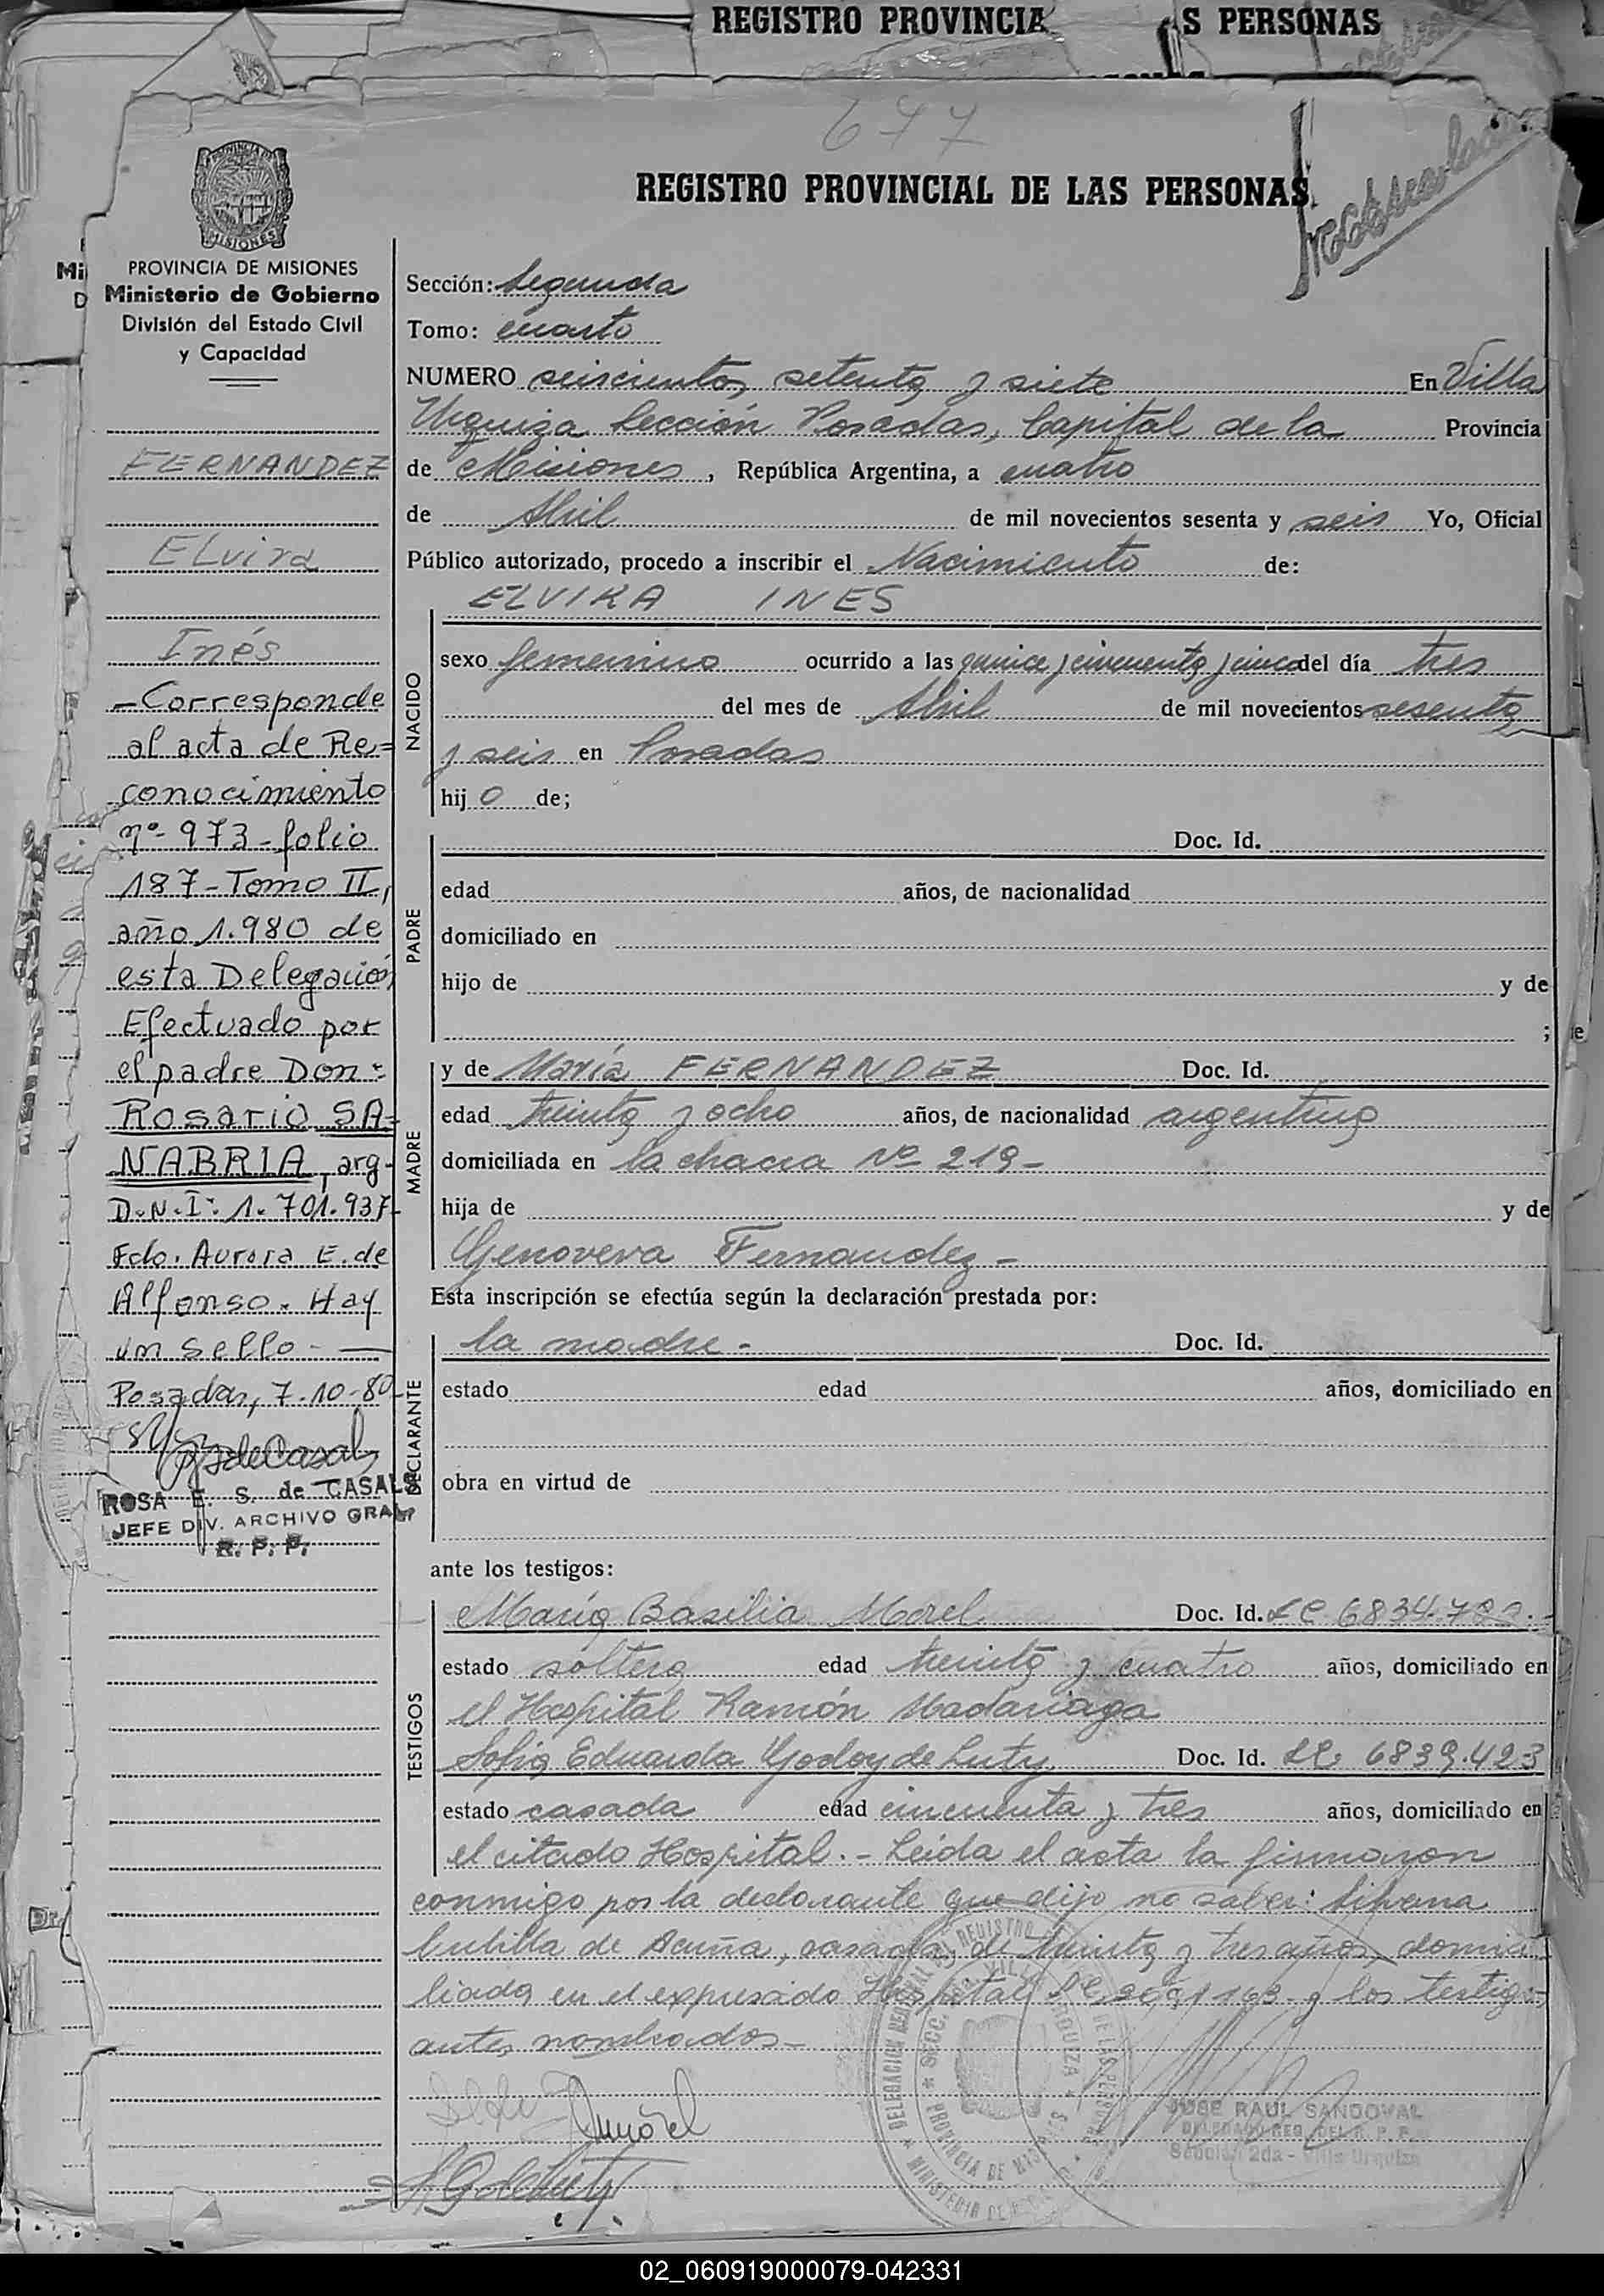 REGISTRO PROVINCIA S PERSONAS
677
REGISTRO PROVINCIAL DE LAS PERSONAS
PROVINCIA DE MISIONES
Ministerio de Gobierno
División del Estado Civil
y Capacidad
FERNANDEZ
Elvira
Inés
- Corresponde
al acta de Re=
conocimiento
nº 973 - folio
187 - Tomo II,
año 1.980 de
esta Delegación
Efectuado por
el padre Don:
Rosario SA=
NABRIA, arg-
D.N.I: 1.701.937-
Fdo. Aurora E. de
Alfonso. Hay
un sello. —
Posadas, 7-10-80
ROSA E. S. de CASALS
JEFE DIV. ARCHIVO GRAL
R. P. P.
Sección: Segunda
Tomo: cuarto
NUMERO seiscientos setenta y siete En Villa
Urquiza Sección Posadas, Capital de la Provincia
de Misiones, República Argentina, a cuatro
de Abril de mil novecientos sesenta y seis Yo, Oficial
Público autorizado, procedo a inscribir el Nacimiento de:
ELVIRA INES
NACIDO
sexo femenino ocurrido a las quince y cincuenta y cinco del día tres
del mes de Abril de mil novecientos sesenta
y seis en Posadas
hij o de;
PADRE
Doc. Id.
edad años, de nacionalidad
domiciliado en
hijo de y de
;
MADRE
y de María FERNANDEZ Doc. Id.
edad treinta y ocho años, de nacionalidad argentina
domiciliada en la chacra Nº 219 -
hija de y de
Genoveva Fernandez -
Esta inscripción se efectúa según la declaración prestada por:
DECLARANTE
la madre - Doc. Id.
estado edad años, domiciliado en
obra en virtud de
ante los testigos:
TESTIGOS
María Basilia Morel Doc. Id. LC 6834.7
estado soltera edad treinta y cuatro años, domiciliado en
el Hospital Ramón Madariaga
Sofia Eduarda Godoy de Luty Doc. Id. LC 6839.423
estado casada edad cincuenta y tres años, domiciliado en
el citado Hospital. - Leída el acta la firmaron
conmigo por la declarante que dijo no saber: Silvana
de Acuña, casada, de treinta y tres años, domici-
liada en el expresado Hospital y los testigos
antes nombrados -
JOSE RAUL SANDOVAL
DELEGADO REG. DEL R. P. P.
Sección 2da - Villa Urquiza
02_060919000079-042331